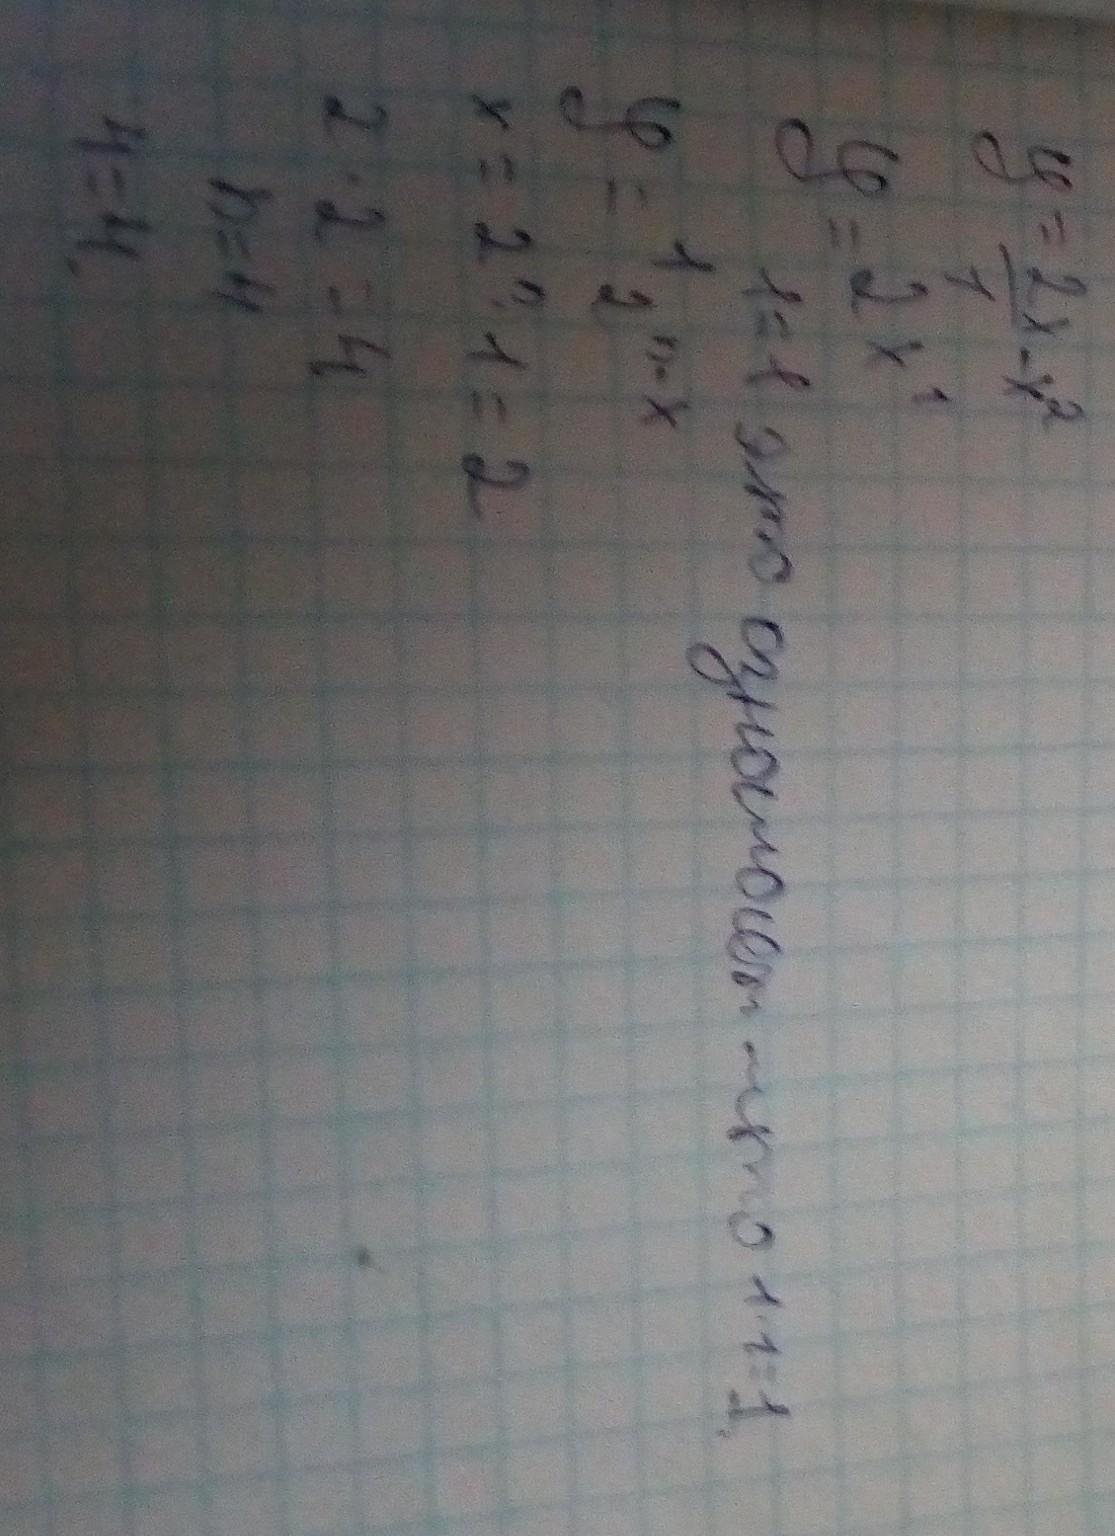 y = 2x - x² / 1
y = 2x¹
1 = 1 это одномошн что 1·1=1.
y = 1 2ⁿ⁻ˣ
x = 2ⁿ·1 = 2
2·2 = 4
n=4
4=4.